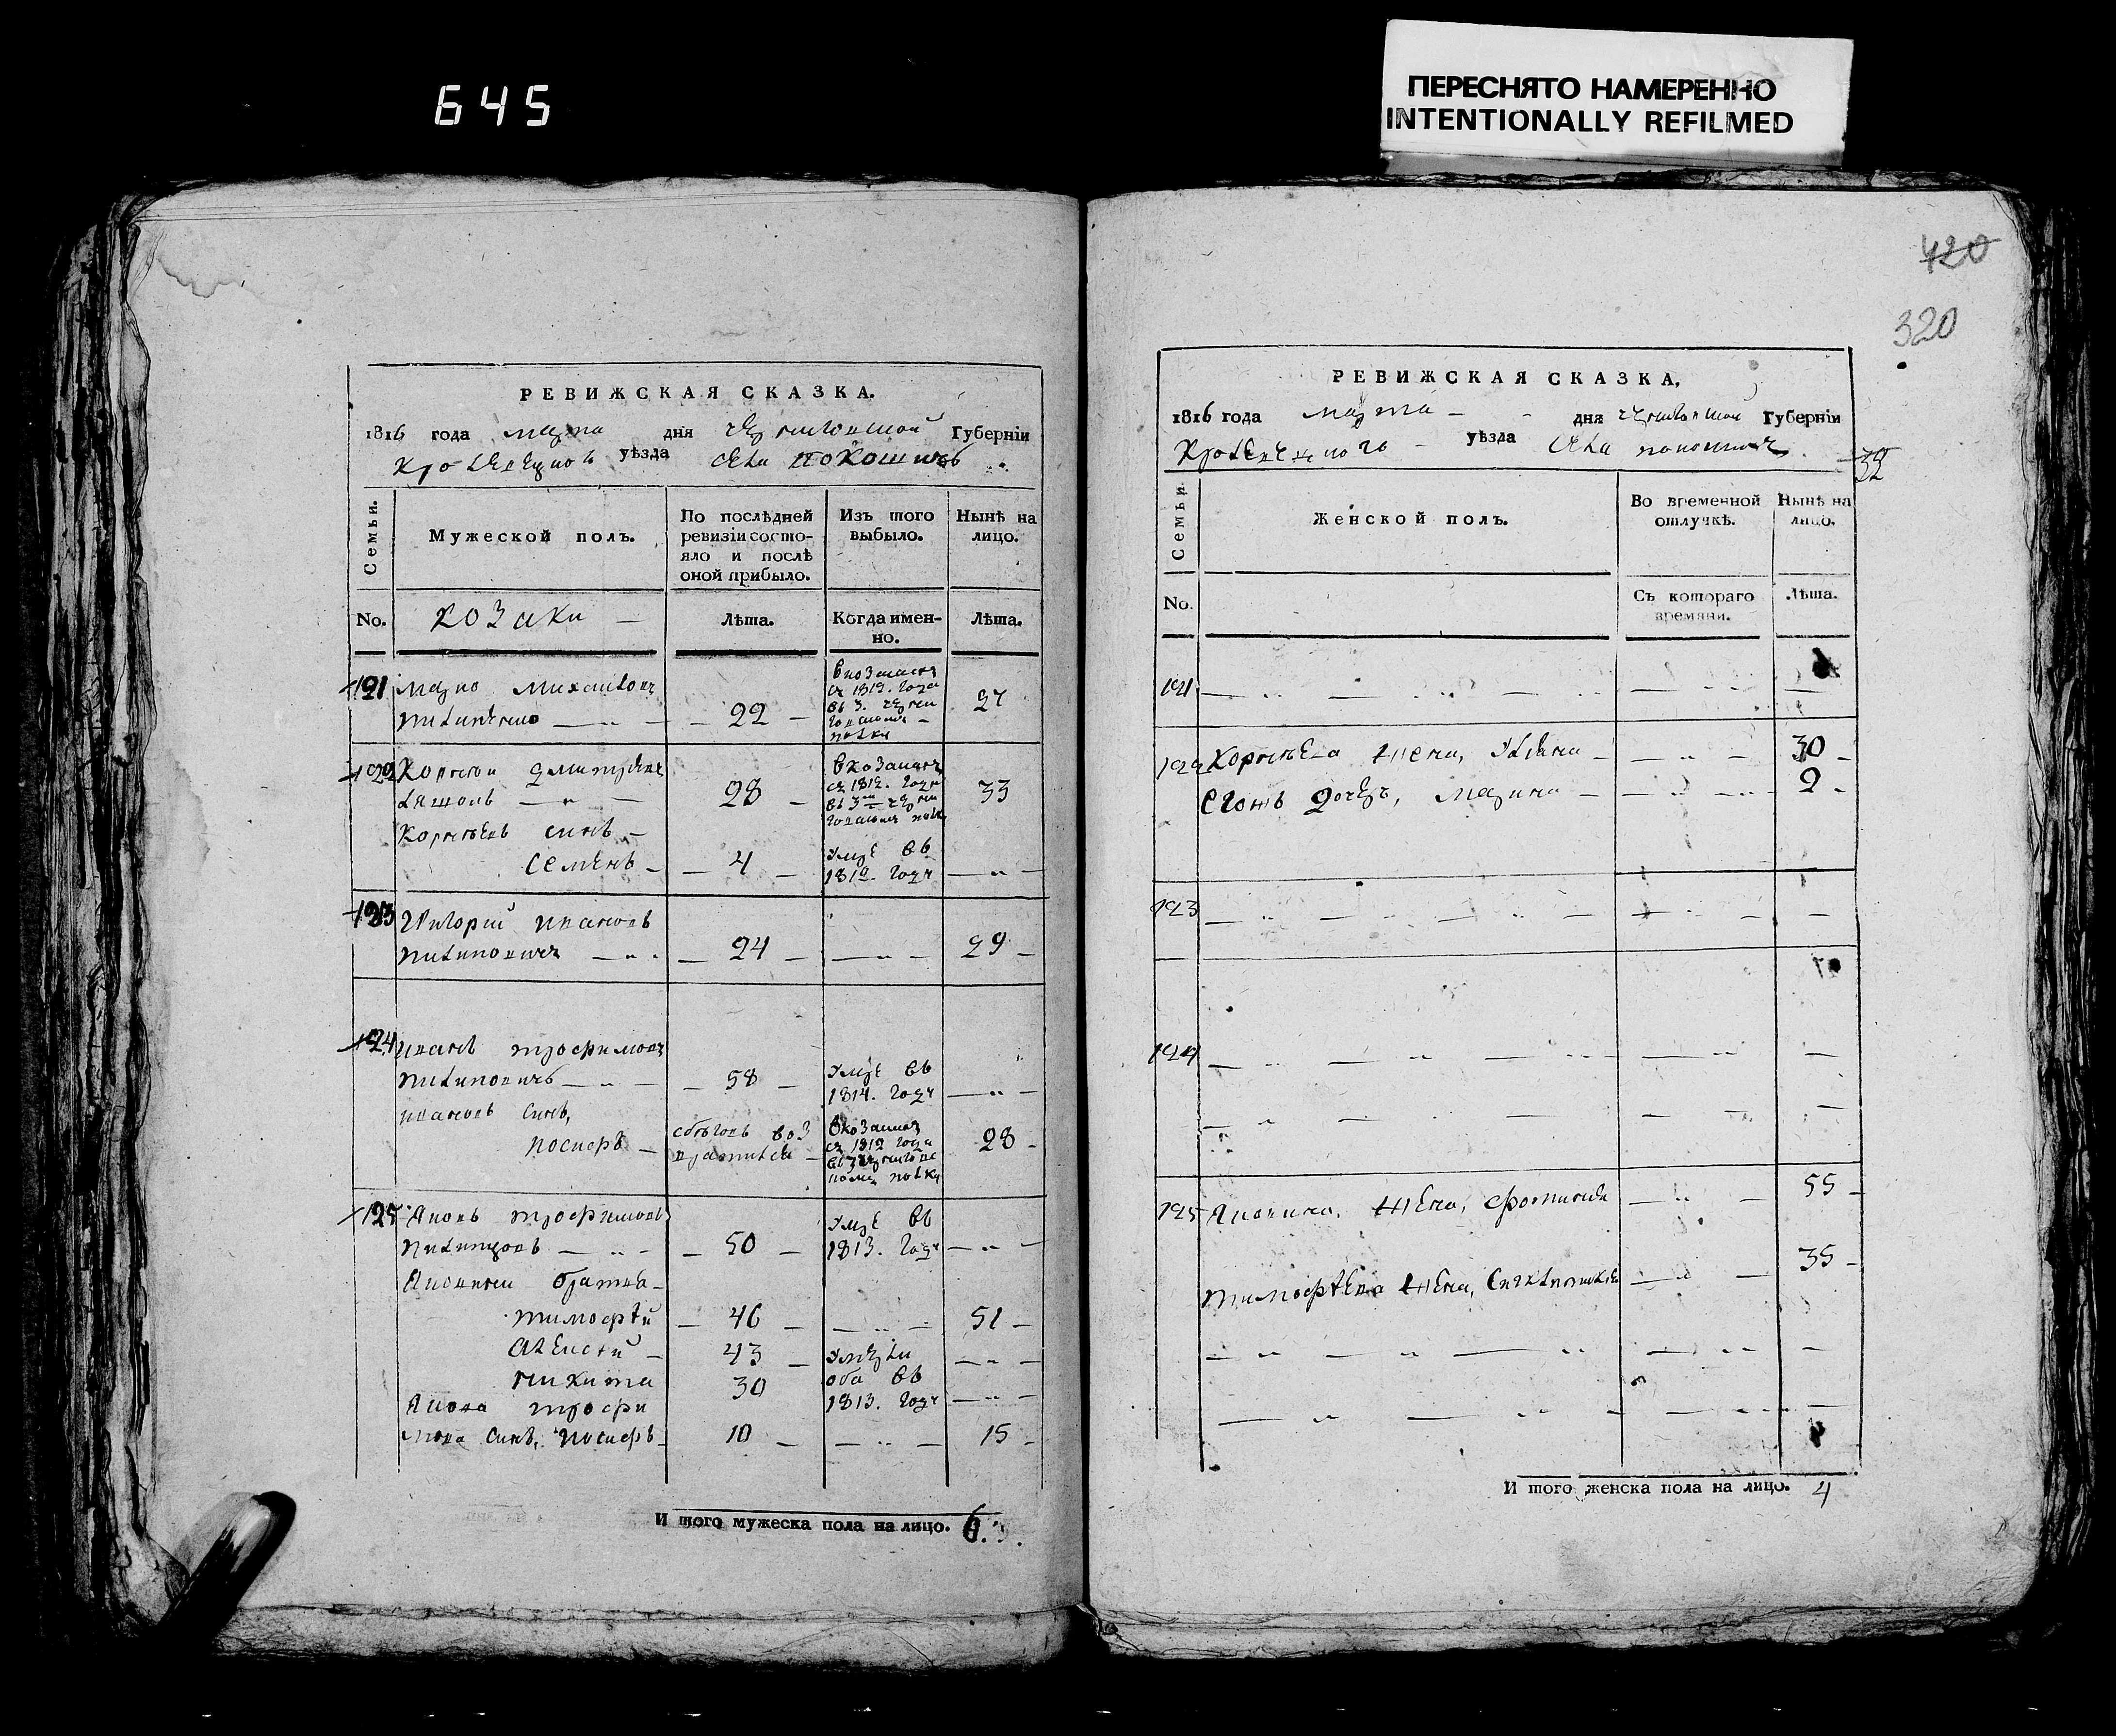 645
ПЕРЕСНЯТО НАМЕРЕННО
INTENTIONALLY REFILMED
РЕВИЖСКАЯ СКАЗКА.
1816 года марта дня черниговской Губерніи
кролевецкого уѣзда села покошичь
Семьи.
Мужеской полъ.
По послѣдней
ревизіи состо-
яло и послѣ
оной прибыло.
Изъ того
выбыло.
Нынѣ на
лицо.
No.
козаки
Лѣта.
Когда имен-
но.
Лѣта.
121 марко михайловъ
22
вкозакахъ
съ 1812. года
въ 3. черни
говскомъ
полку
27
122 Корнѣй дмитріевъ
28
вкозакахъ
съ 1812. года
въ 3 черни
говскомъ полку
33
Корнѣевъ синъ
Семенъ
4
умре въ
1812. году
123 Григорій ивановъ
пилиповичъ
24
29
124 иванъ трофимовъ
пилиповичъ
58
умре въ
1814. году
ивановъ синъ,
иосифъ
збѣговъ воз
вратился
вкозакахъ
съ 1812 года
28
125 Яковъ трофимовъ
50
умре въ
1813. году
Яковини братья
тимофѣй
46
51
алексѣй
43
умерли
никита
30
оба въ
1813. году
Якова трофи
мова синъ, иосифъ
10
15
И того мужеска пола на лицо. 6.
420
320
РЕВИЖСКАЯ СКАЗКА,
1816 года марта дня черниговской Губерніи
кролевецкого уѣзда села покошичь
32
Семьи
Женской полъ.
Во временной
отлучкѣ.
Нынѣ на
лицо.
No.
Съ котораго
времяни.
Лѣта.
121
122 Корнѣева жена, Уляна
30
Егожъ дочерь, марина
2
123
124
125 Яковина жена,
55
тимофѣева жена,
35
И того женска пола на лицо. 4